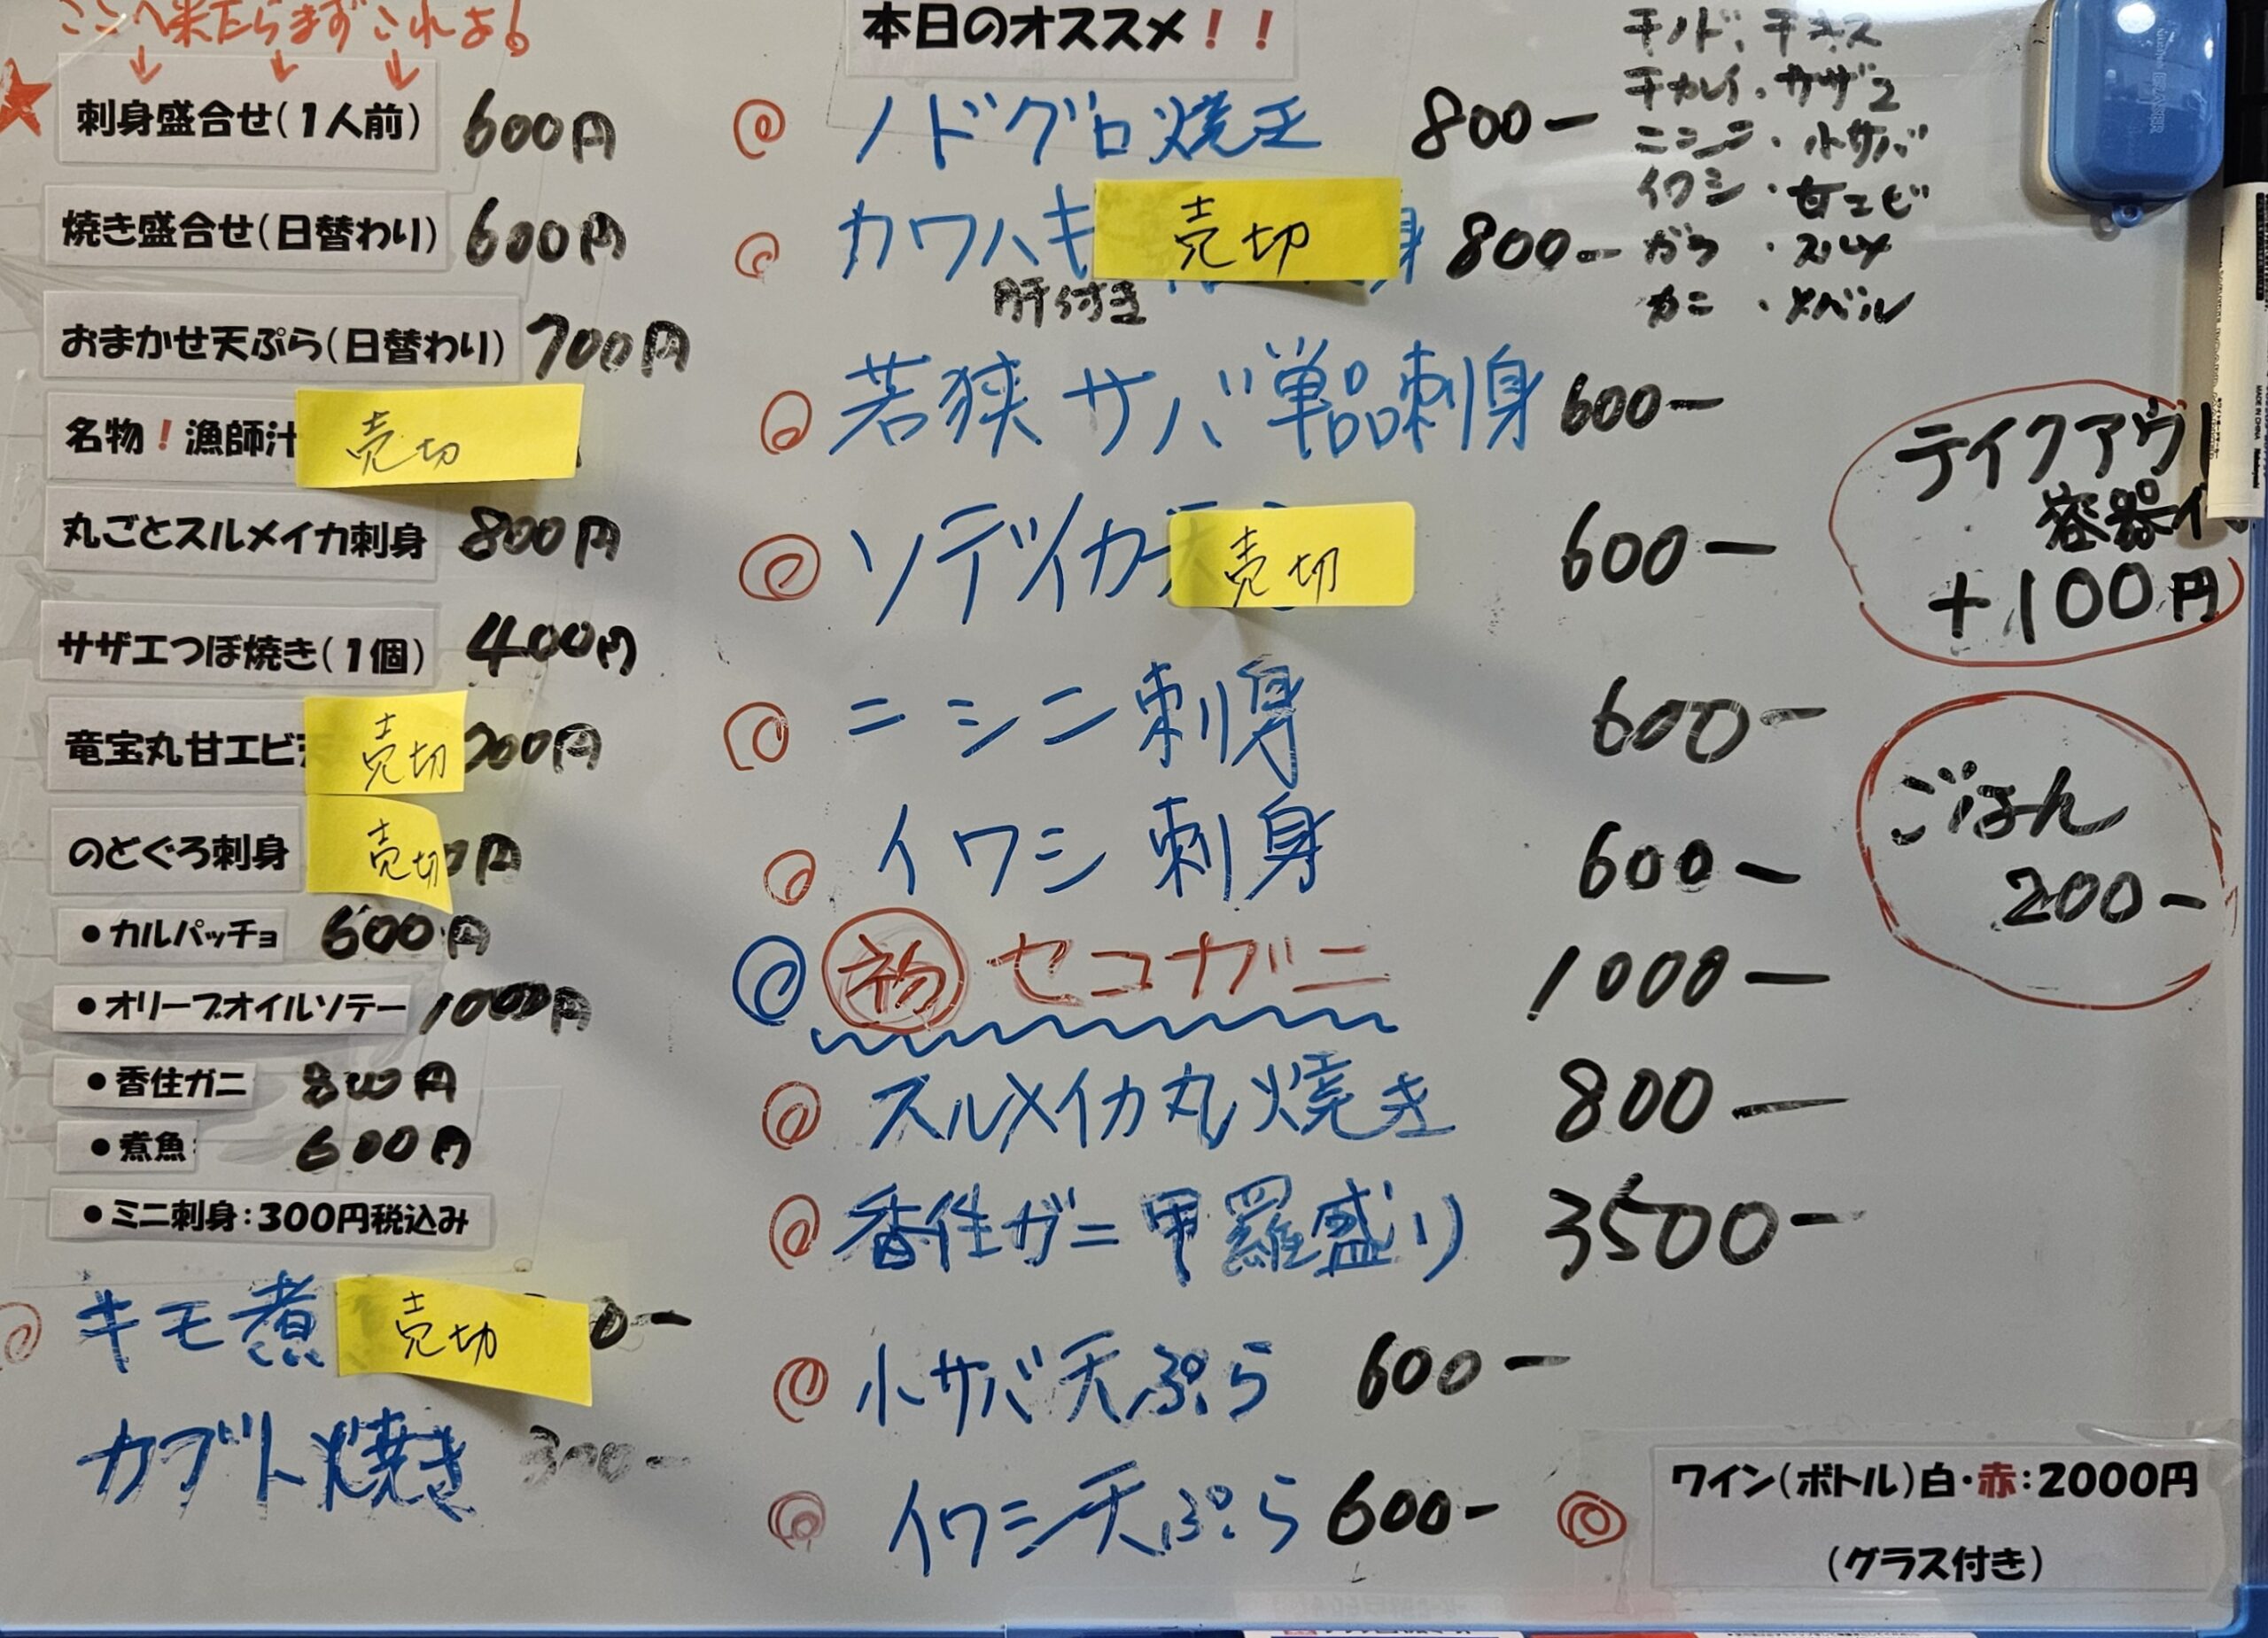 ここへ来たらまずこれよ!
刺身盛合せ(1人前) 600円
焼き盛合せ(日替わり) 600円
おまかせ天ぷら(日替わり) 700円
名物!漁師汁 売切
丸ごとスルメイカ刺身 800円
サザエつぼ焼き(1個) 400円
竜宝丸甘エビ 売切 00円
のどぐろ刺身 売切 0円
•カルパッチョ 600円
•オリーブオイルソテー 1000円
•香住ガニ 800円
•煮魚: 600円
•ミニ刺身:300円税込み
キモ煮 売切 0-
カブト焼き 300-
本日のオススメ!!
ノドグロ焼 800-
カワハギ 売切 身 800-
肝付き
若狭サバ単品刺身 600-
ソデイカ 売切 600-
ニシン刺身 600-
イワシ刺身 600-
初 セコガニ 1000-
スルメイカ丸焼き 800-
香住ガニ甲羅盛り 3500-
小サバ天ぷら 600-
イワシ天ぷら 600-
干カレイ・サザエ
ニシン・小サバ
イワシ・甘エビ
ガラ・スルメ
カニ・メバル
テイクアウ
容器
+100円
ごはん
200-
ワイン(ボトル)白・赤:2000円
(グラス付き)